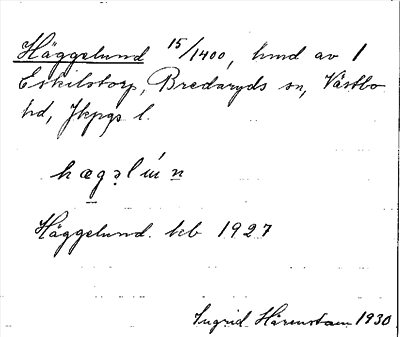 Häggelund 15/1400, hmd av 1
Eskilstorp, Bredaryds sn, Västbo
hd, Jkpgs l.
hægəlún
Häggelund. kb 1927
Ingrid Härenstam 1930